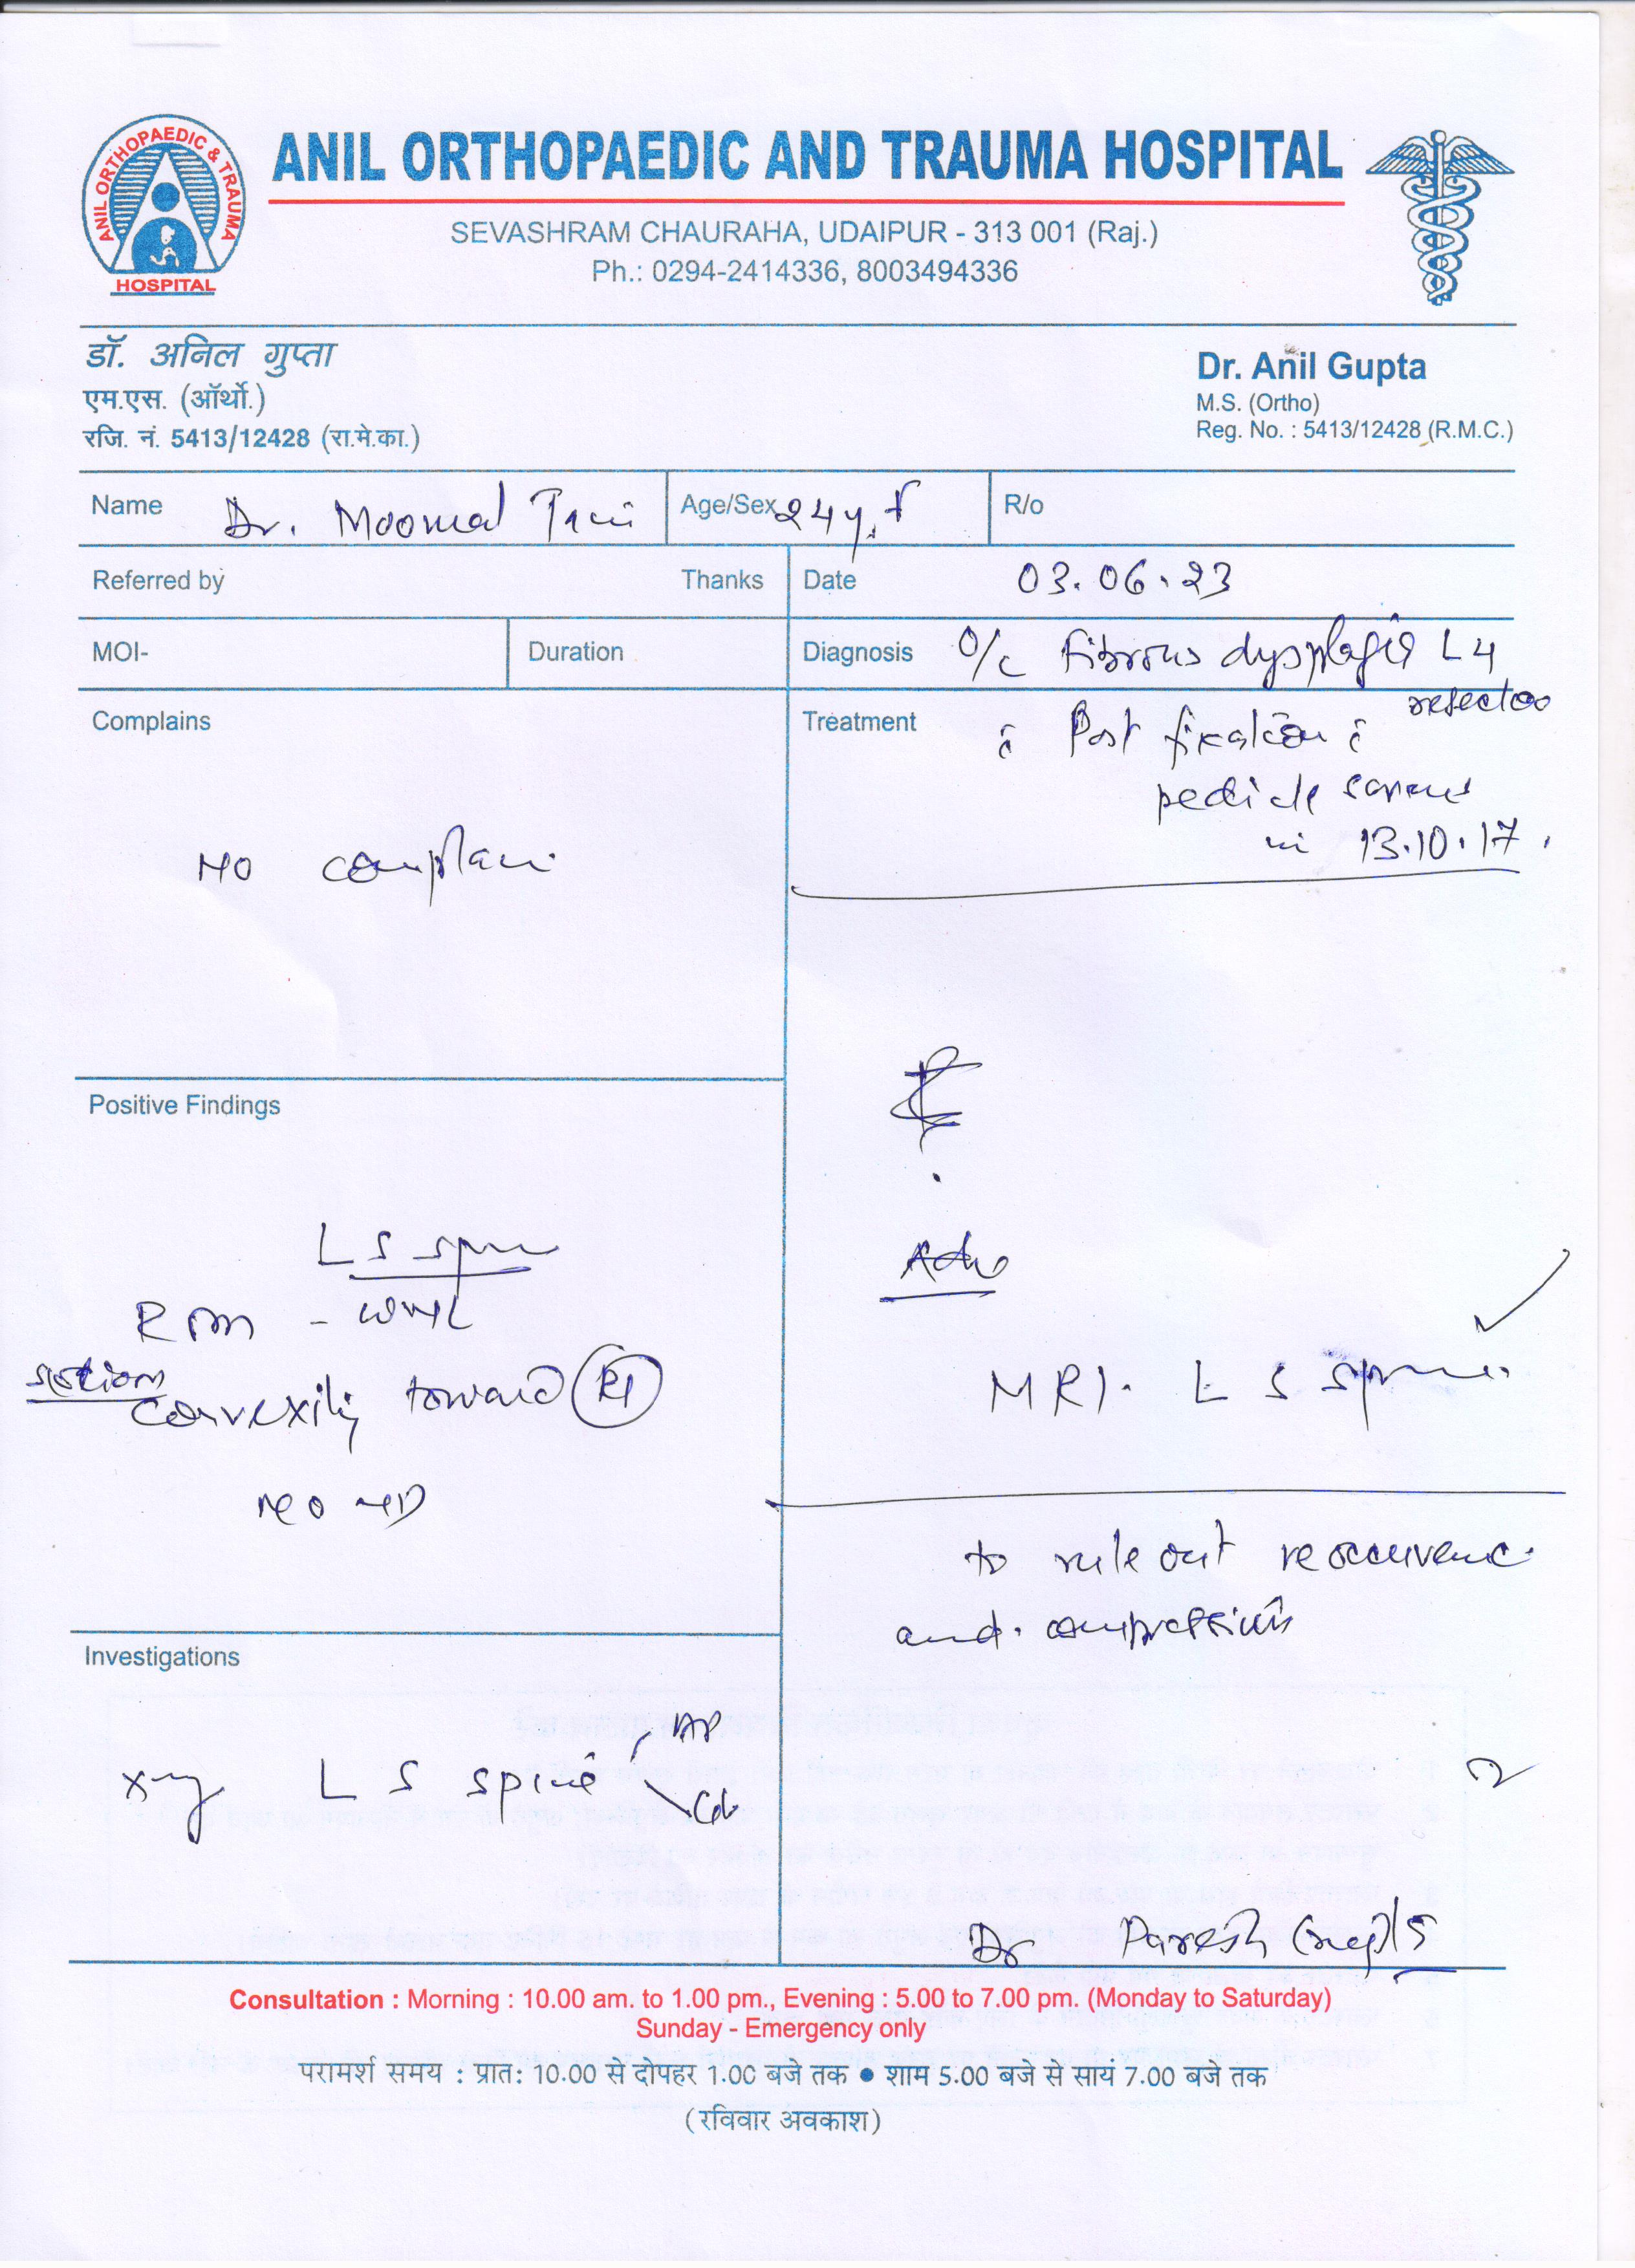 ANIL ORTHOPAEDIC & TRAUMA
HOSPITAL
ANIL ORTHOPAEDIC AND TRAUMA HOSPITAL
SEVASHRAM CHAURAHA, UDAIPUR - 313 001 (Raj.)
Ph.: 0294-2414336, 8003494336
डॉ. अनिल गुप्ता
एम.एस. (ऑर्थो.)
रजि. नं. 5413/12428 (रा.मे.का.)
Dr. Anil Gupta
M.S. (Ortho)
Reg. No. : 5413/12428 (R.M.C.)
Name Dr. Moomal Age/Sex 24y, F R/o
Referred by Thanks Date 03.06.23
MOI- Duration Diagnosis O/c Fibrous dysplasia L4
Complains
No complain
Treatment Post fixation
pedicle screws
in 13.10.17.
Positive Findings
L S spine
ROM - WNL
convexity toward Rt
No ND
Investigations
X-ray L S spine AP
Adv
MRI. L S spine
to rule out reoccurence
and. compression
Dr Paresh
Consultation : Morning : 10.00 am. to 1.00 pm., Evening : 5.00 to 7.00 pm. (Monday to Saturday)
Sunday - Emergency only
परामर्श समय : प्रात: 10.00 से दोपहर 1.00 बजे तक ● शाम 5.00 बजे से सायं 7.00 बजे तक
(रविवार अवकाश)